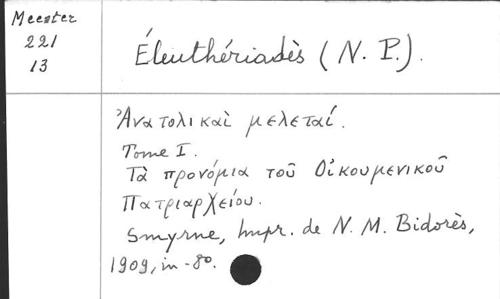 Meester
221
13
Éleuthériadès (N. P.).
Ἀνατολικαὶ μελεταί.
Tome I.
Τὰ προνόμια τοῦ Οἰκουμενικοῦ
Πατριαρχείου.
Smyrne, Impr. de N. M. Bidorès,
1909, in-8º.